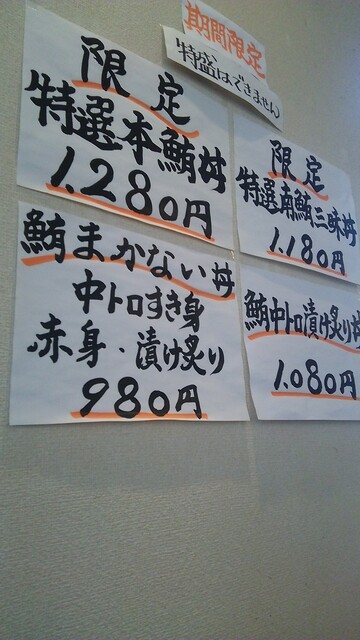 期間限定
特盛はできません
限定
特選本鮪丼
1,280円
限定
特選南鮪三味丼
1,180円
鮪まかない丼
中トロすき身
赤身・漬け炙り
980円
鮪中トロ漬け炙り丼
1,080円